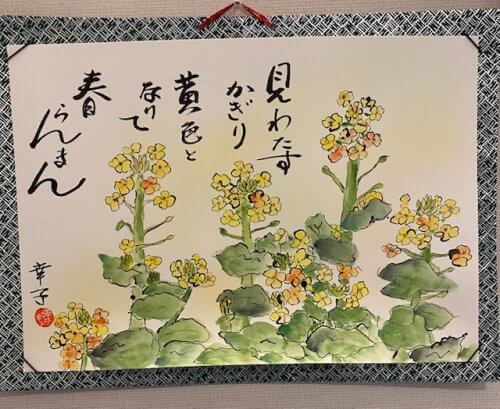 見わたす
かぎり
黄色と
なりて
春
らんまん
幸子